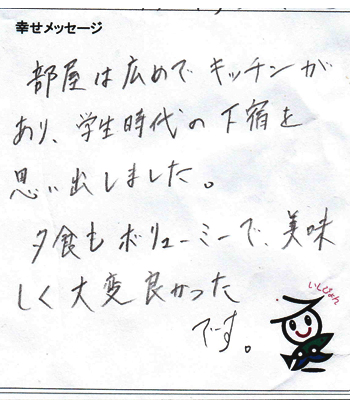 幸せメッセージ
部屋は広めでキッチンが
あり、学生時代の下宿を
思い出しました。
夕食もボリューミーで、美味
しく大変良かった
です。